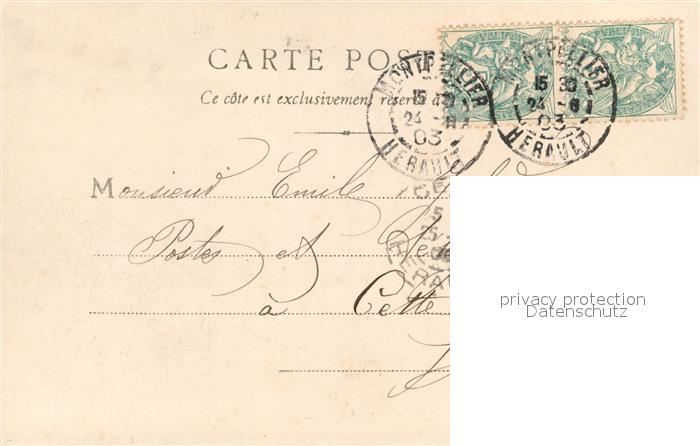 CARTE POST
Ce côte est exclusivement réservé à
MONTPELLIER
15 30
24
03
HERAULT
MONTPELLIER
15 30
24
03
HERAULT
Monsieur Emile
Postes et
à Cette
HERAU
privacy protection
Datenschutz